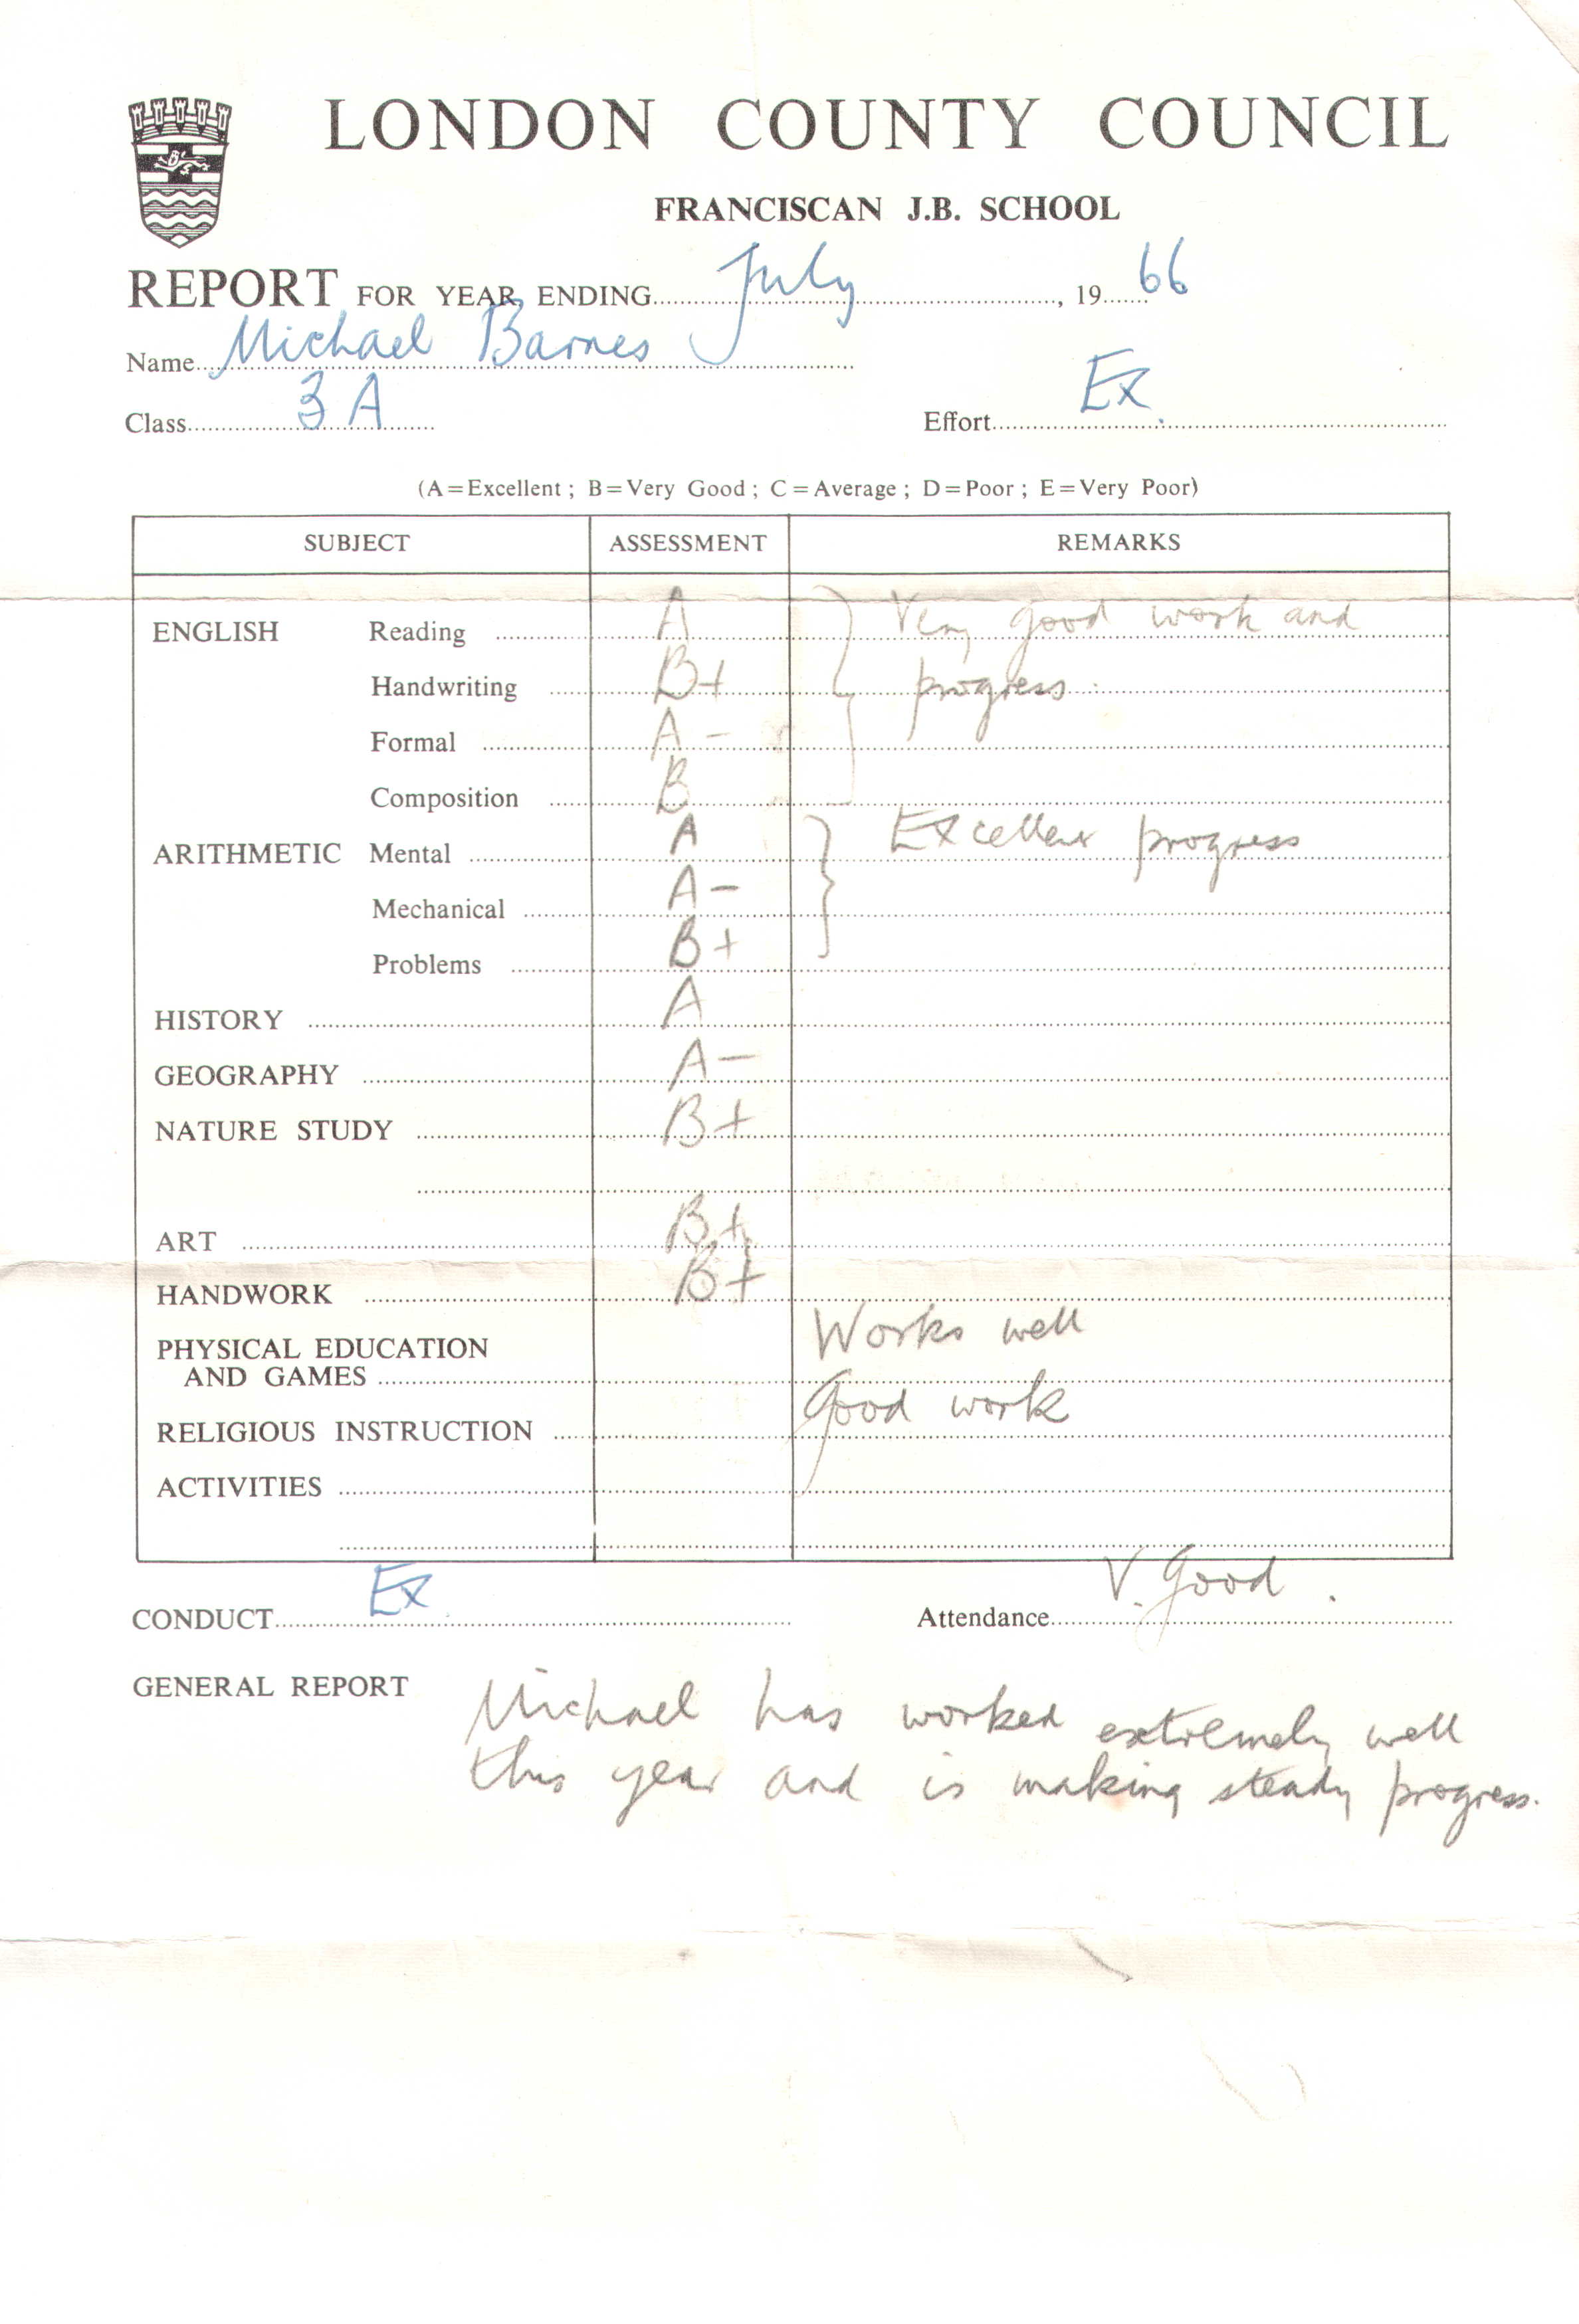 LONDON COUNTY COUNCIL
FRANCISCAN J.B. SCHOOL
REPORT FOR YEAR ENDING July, 19 66
Name Michael Barnes
Class 3A Effort Ex.
(A=Excellent; B=Very Good; C=Average; D=Poor; E=Very Poor)
SUBJECT ASSESSMENT REMARKS
ENGLISH Reading A Very good work and
Handwriting B+ progress.
Formal A-
Composition B
ARITHMETIC Mental A Excellent progress
Mechanical A-
Problems B+
HISTORY A
GEOGRAPHY A-
NATURE STUDY B+
ART B+
HANDWORK B+
PHYSICAL EDUCATION Works well
AND GAMES
RELIGIOUS INSTRUCTION Good work
ACTIVITIES
CONDUCT Ex. Attendance V. Good.
GENERAL REPORT Michael has worked extremely well
this year and is making steady progress.